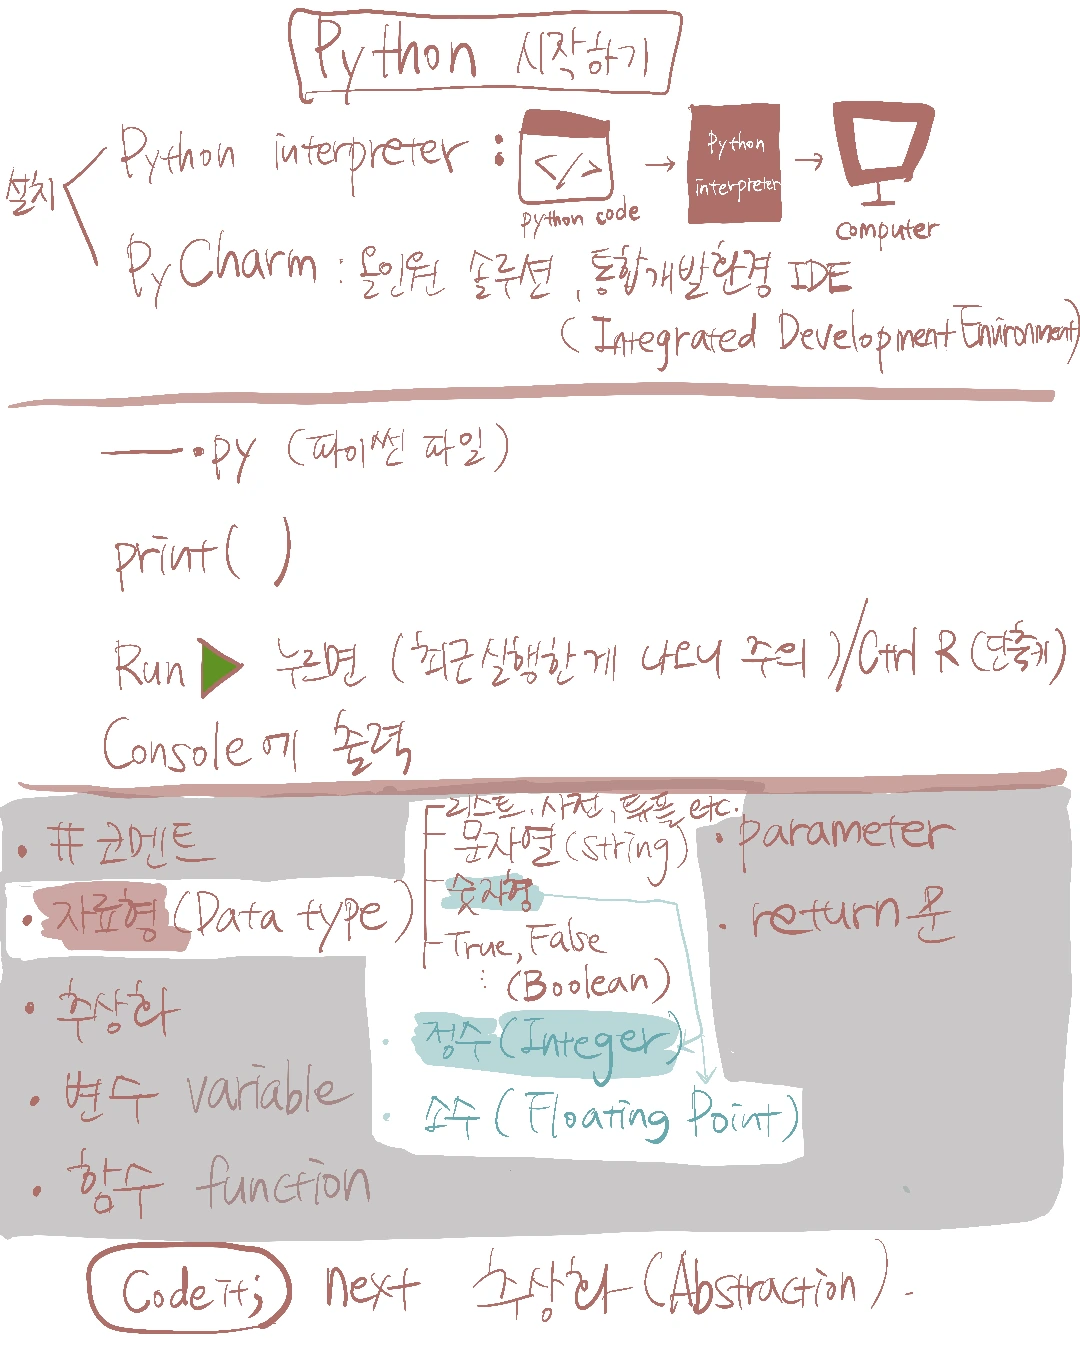 Python 시작하기
설치
Python interpreter :
</>
python code
→
Python
interpreter
→
computer
PyCharm : 올인원 솔루션, 통합개발환경 IDE
(Integrated Development Environment)
.py (파이썬 파일)
print( )
Run ▶ 누르면 (최근실행한게 나오니 주의)/Ctrl R (단축키)
Console에 출력
• #코멘트
• 자료형 (Data type)
리스트, 사전, 튜플, etc.
문자열 (String)
숫자형
True, False
(Boolean)
• 정수 (Integer)
• 소수 (Floating Point)
• 추상화
• 변수 variable
• 함수 function
• parameter
• return문
Codeit; next 추상화 (Abstraction).